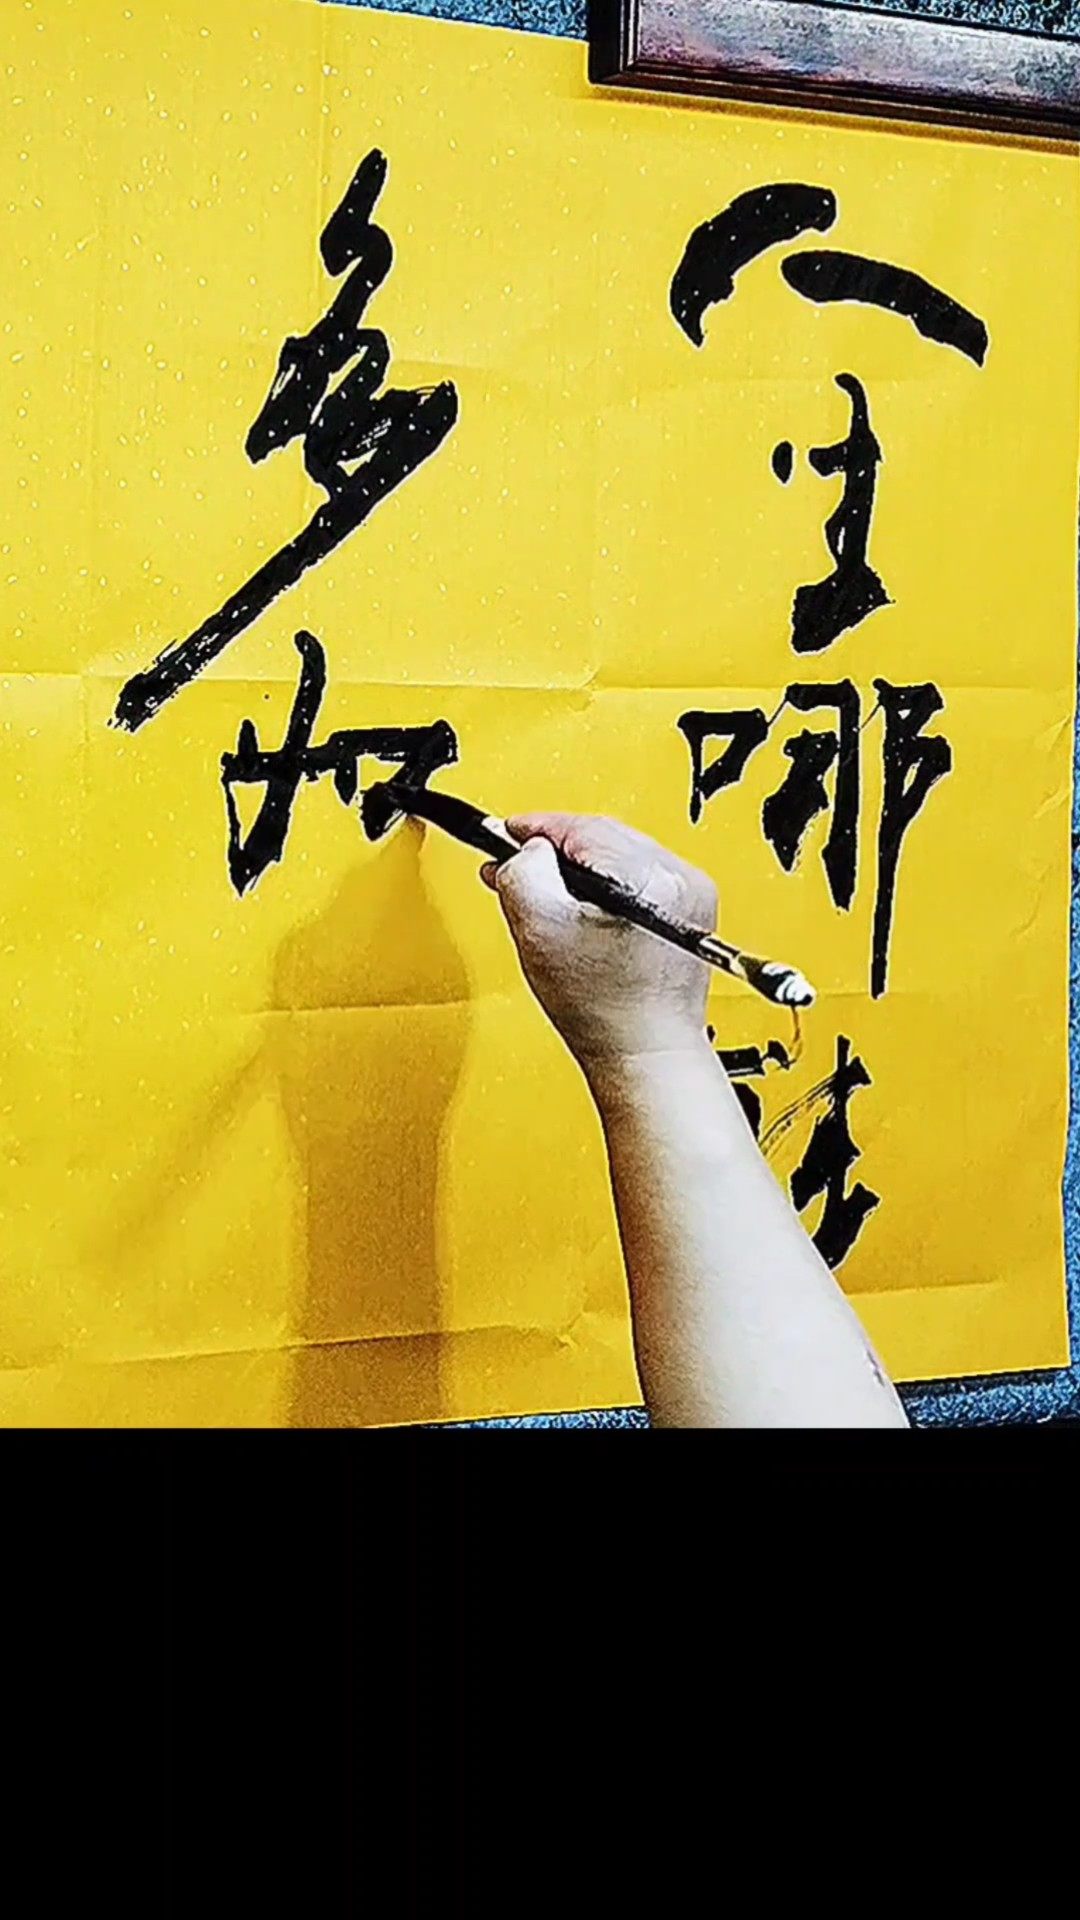 人生哪能
多如